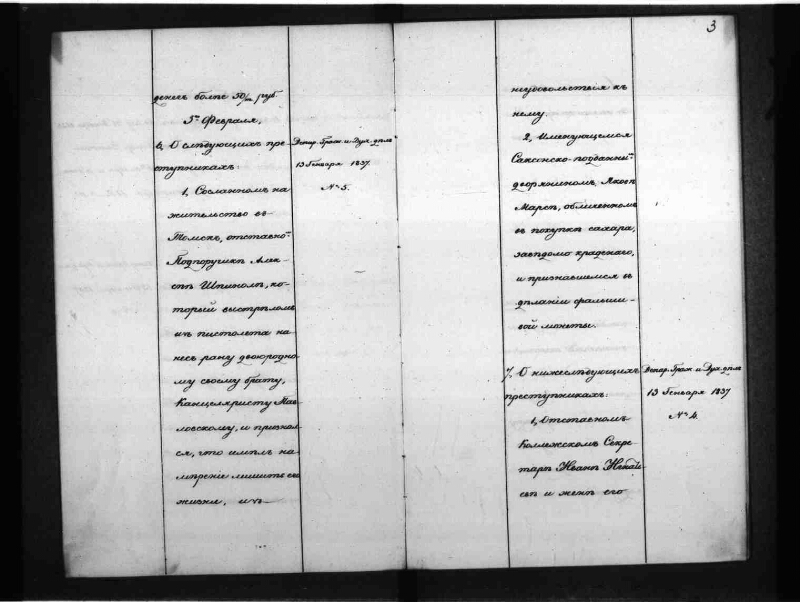 3
денегъ болѣе 50/m руб.
5го Февраля.
6, О слѣдующихъ пре-
ступникахъ:
1, Сосланномъ на
жительство въ
Томскъ, отставно
Подпоручикѣ Алек-
сѣѣ Шпиномъ, ко-
торый выстрѣломъ
изъ пистолета на-
несъ рану двоюродно-
му своему брату,
Канцеляристу
ловскому, и признал-
ся, что имѣлъ на-
мѣреніе лишить его
жизни, изъ
Депар. Граж. и Дух. дѣлъ
13 Генваря 1837.
№ 5.
неудовольствія къ
нему.
2, Именующемся
Саксонско-подданни-
дворяниномъ, Яковѣ
Марсѣ, обличенномъ
въ покупкѣ сахара,
завѣдомо краденаго,
и признавшемся въ
дѣланіи фальши-
вой монеты.
7, О нижеслѣдующихъ
преступникахъ:
1, Отставномъ
Коллежскомъ Секре-
тарѣ Иванѣ
и женѣ его
Депар. Граж. и Дух. дѣлъ
13 Генваря 1837
№ 4.